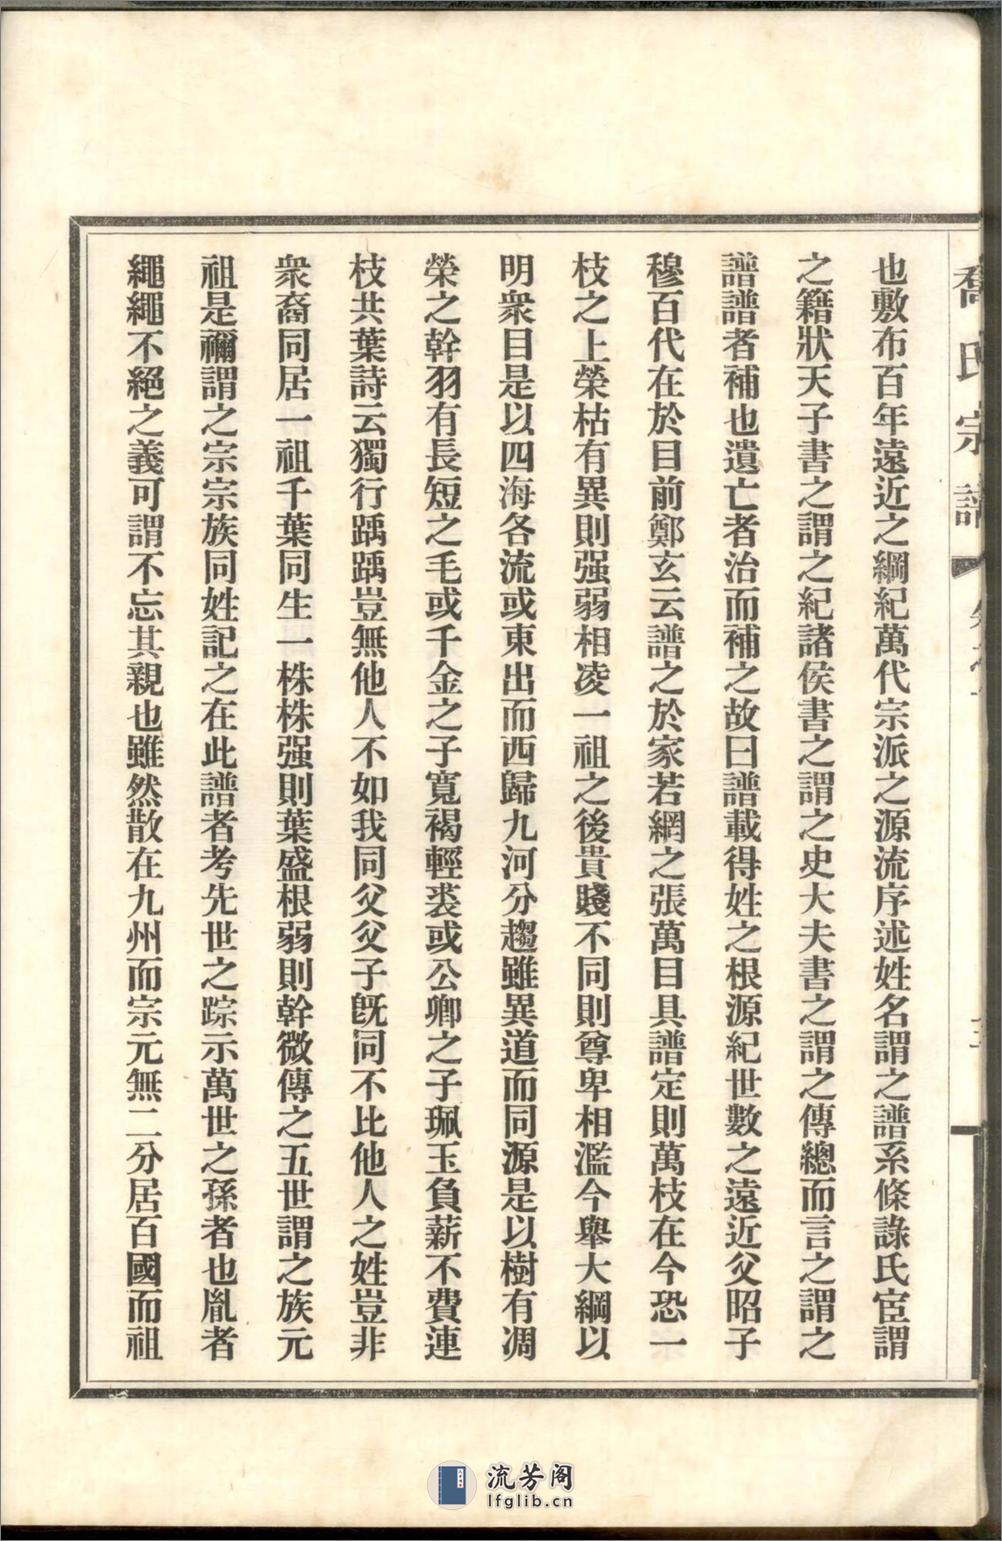 喬氏宗譜
也敷布百年遠近之綱紀萬代宗派之源流序述姓名謂之譜系條錄氏宦謂
之籍狀天子書之謂之紀諸侯書之謂之史大夫書之謂之傳總而言之謂之
譜譜者補也遺亡者治而補之故曰譜載得姓之根源紀世數之遠近父昭子
穆百代在於目前鄭玄云譜之於家若網之張萬目具譜定則萬枝在今恐一
枝之上榮枯有異則强弱相凌一祖之後貴賤不同則尊卑相濫今舉大綱以
明衆目是以四海各流或東出而西歸九河分趨雖異道而同源是以樹有凋
榮之幹羽有長短之毛或千金之子寬褐輕裘或公卿之子珮玉負薪不費連
枝共葉詩云獨行踽踽豈無他人不如我同父父子旣同不比他人之姓豈非
衆裔同居一祖千葉同生一株株强則葉盛根弱則幹微傳之五世謂之族元
祖是禰謂之宗宗族同姓記之在此譜者考先世之踪示萬世之孫者也胤者
繩繩不絕之義可謂不忘其親也雖然散在九州而宗元無二分居百國而祖
流芳阁
lfglib.cn